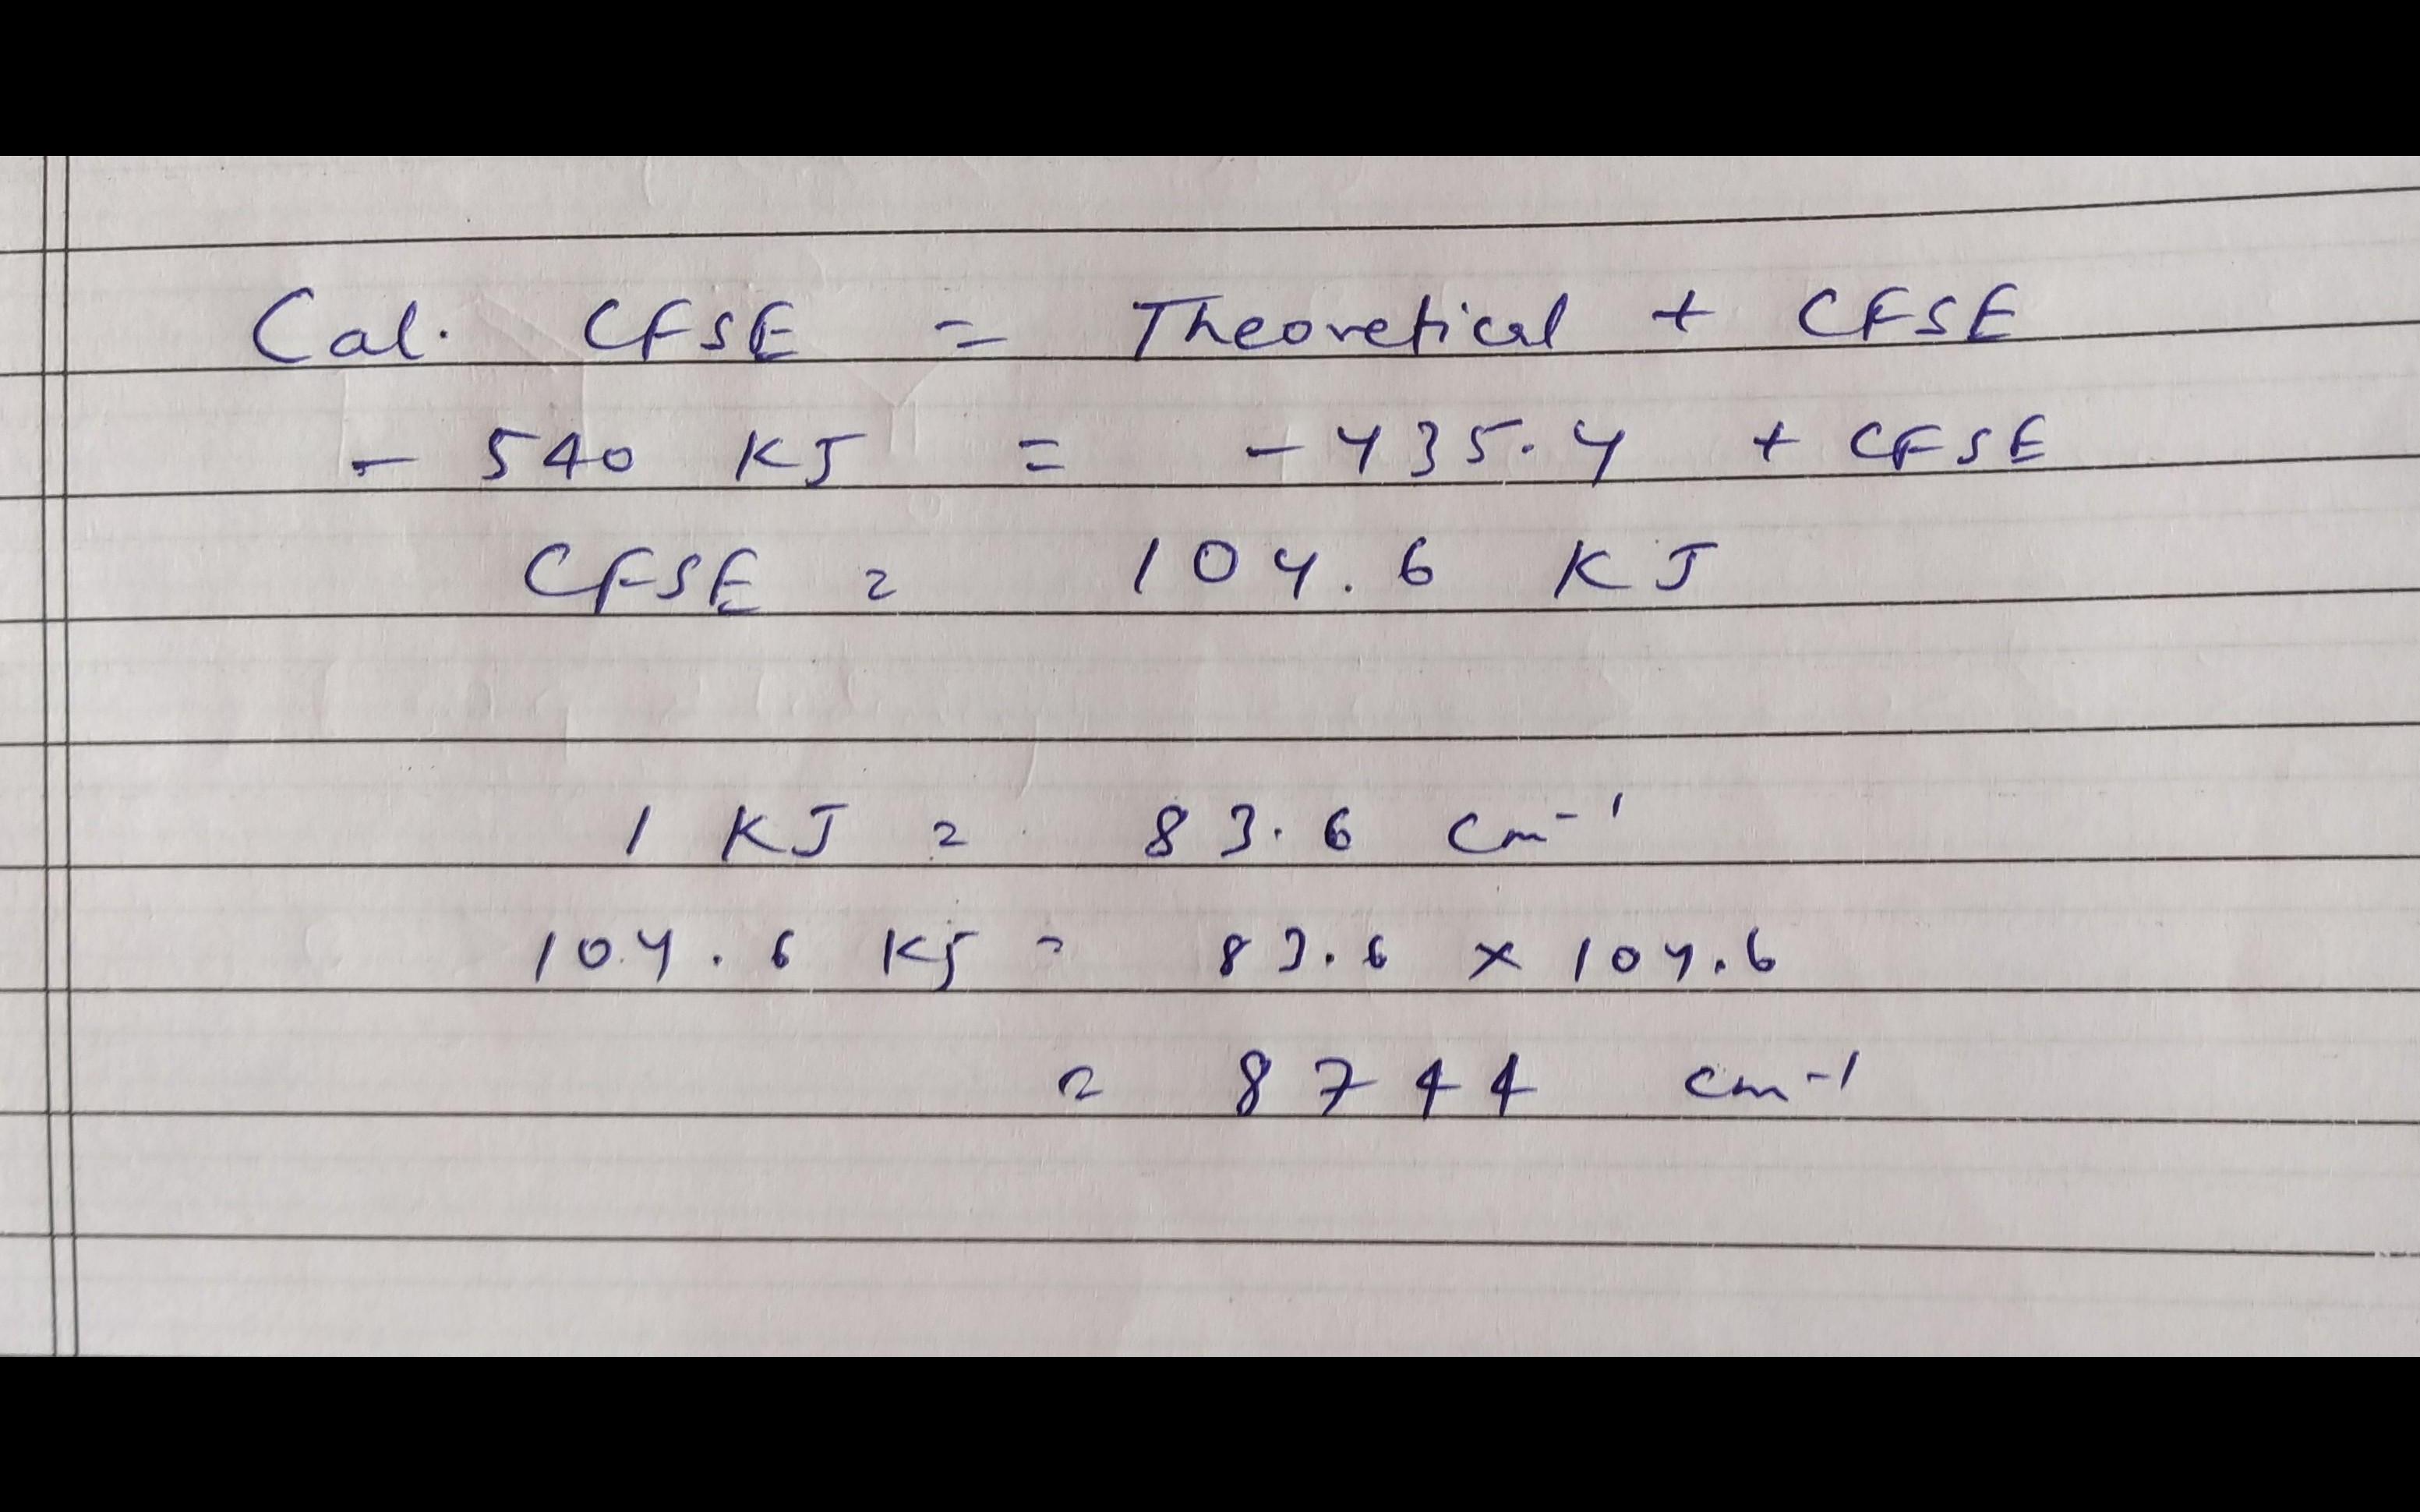 Cal. CFSE = Theoretical + CFSE
- 540 KJ = - 435.4 + CFSE
CFSE = 104.6 KJ
1 KJ = 83.6 cm⁻¹
104.6 KJ = 83.6 × 104.6
= 8744 cm⁻¹